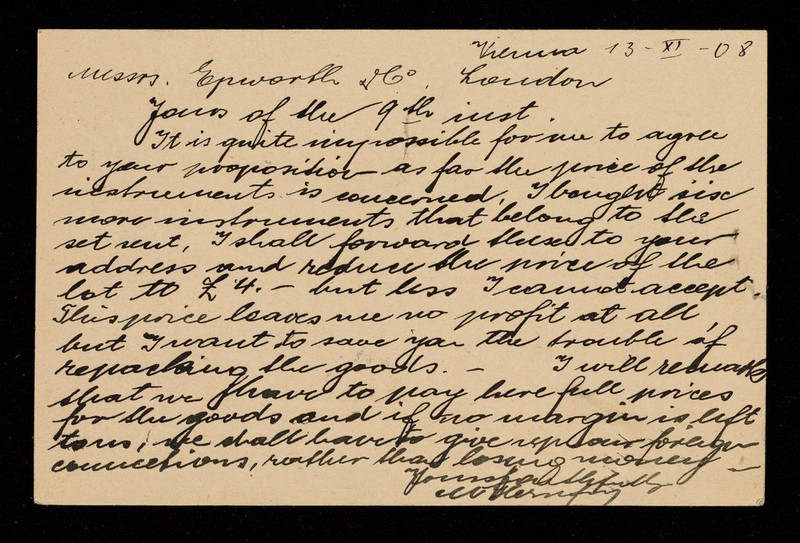 Vienna 13-XI-08
Messrs. Epworth & Co. London
Yours of the 9th inst.
It is quite impossible for me to agree
to your proposition as far the price of the
instruments is concerned. I bought six
more instruments that belong to the
set sent, I shall forward these to your
address and reduce the price of the
lot to £4.- but less I cannot accept.
This price leaves me no profit at all,
but I want to save you the trouble of
repacking the goods. - I will remark
that we have to pay here full prices
for the goods and if no margin is left
to us, we shall have to give up our foreign
connections, rather than losing money -
Yours faithfully